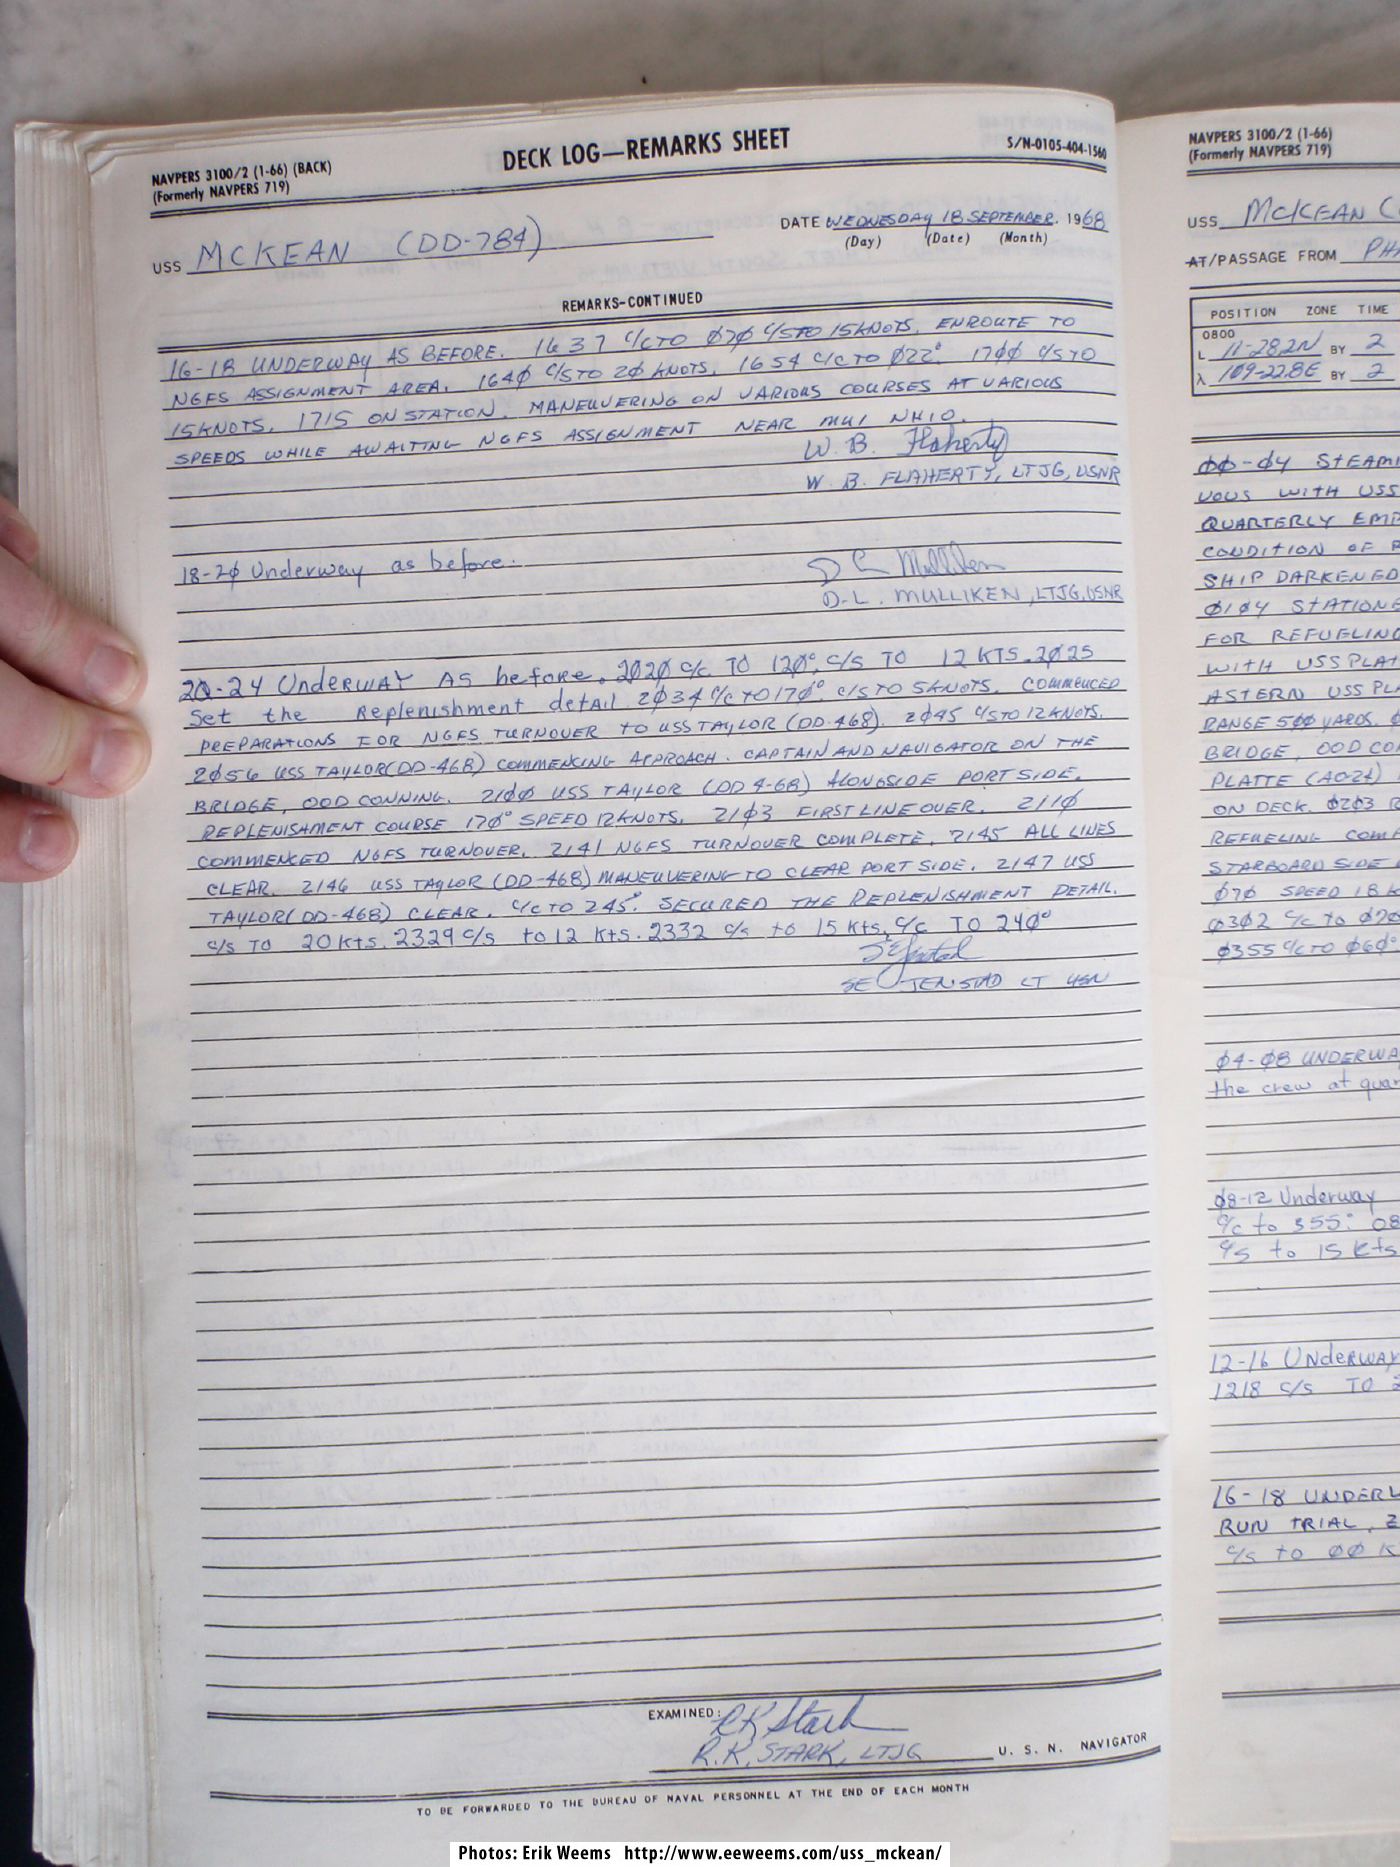 NAVPERS 3100/2 (1-66) (BACK)
(Formerly NAVPERS 719)
DECK LOG—REMARKS SHEET
S/N-0105-404-1560
USS MCKEAN (DD-784)
DATE WEDNESDAY 18 SEPTEMBER. 1968
(Day) (Date) (Month)
REMARKS-CONTINUED
16-18 UNDERWAY AS BEFORE. 1637 C/C TO Ø7Ø C/S TO 15 KNOTS, ENROUTE TO
NGFS ASSIGNMENT AREA. 164Ø C/S TO 2Ø KNOTS. 1654 C/C TO Ø22° 17ØØ C/S TO
15 KNOTS. 1715 ON STATION. MANEUVERING ON VARIOUS COURSES AT VARIOUS
SPEEDS WHILE AWAITING NGFS ASSIGNMENT NEAR MUI NHIO.
W. B. Flaherty
W. B. FLAHERTY, LTJG, USNR
18-2Ø Underway as before.
D L Mulliken
D.L. MULLIKEN, LTJG, USNR
20-24 UnderWAY AS before. 2020 C/C TO 120°, C/S TO 12 KTS. 2Ø25
Set the Replenishment detail 2Ø34 C/C TO 17Ø° C/S TO 5 KNOTS. COMMENCED
PREPARATIONS FOR NGFS TURNOVER TO USS TAYLOR (DD-468). 2Ø45 C/S TO 12 KNOTS.
2Ø56 USS TAYLOR (DD-468) COMMENCING APPROACH. CAPTAIN AND NAVIGATOR ON THE
BRIDGE, OOD CONNING. 21ØØ USS TAYLOR (DD 4-68) ALONGSIDE PORT SIDE.
REPLENISHMENT COURSE 17Ø° SPEED 12 KNOTS. 21Ø3 FIRST LINE OVER. 211Ø
COMMENCED NGFS TURNOVER. 2141 NGFS TURNOVER COMPLETE. 2145 ALL LINES
CLEAR. 2146 USS TAYLOR (DD-468) MANEUVERING TO CLEAR PORT SIDE. 2147 USS
TAYLOR (DD-468) CLEAR. C/C TO 245°. SECURED THE REPLENISHMENT DETAIL.
C/S TO 20 Kts. 2329 C/S to 12 Kts. 2332 C/s to 15 Kts, C/C TO 240°
SE JENSTAD LT USN
EXAMINED: RK Stark
R.K. STARK, LTJG U. S. N. NAVIGATOR
TO BE FORWARDED TO THE BUREAU OF NAVAL PERSONNEL AT THE END OF EACH MONTH
NAVPERS 3100/2 (1-66)
(Formerly NAVPERS 719)
USS MCKEAN (
AT/PASSAGE FROM
POSITION ZONE TIME
0800
L 11-28.2N BY 2
λ 109-22.8E BY 2
ØØ-Ø4 STEAMI
VOUS WITH USS
QUARTERLY EMP
CONDITION OF
SHIP DARKENED
Ø1Ø4 STATIONE
FOR REFUELING
WITH USS PLA
ASTERN USS PLA
RANGE 5ØØ YARDS.
BRIDGE, OOD CO
PLATTE (AO24)
ON DECK. Ø2Ø3
REFUELING COMP
STARBOARD SIDE
Ø7Ø SPEED 18 K
Ø3Ø2 C/C TO Ø7Ø
Ø355 C/C TO Ø6Ø°
Ø4-Ø8 UNDERWA
the crew at quar
Ø8-12 Underway
C/c to 355° 08
C/s to 15 Kts
12-16 UNderWAY
1218 C/s TO
16-18 UNDERW
RUN TRIAL,
C/s to ØØ K
Photos: Erik Weems http://www.eeweems.com/uss_mckean/